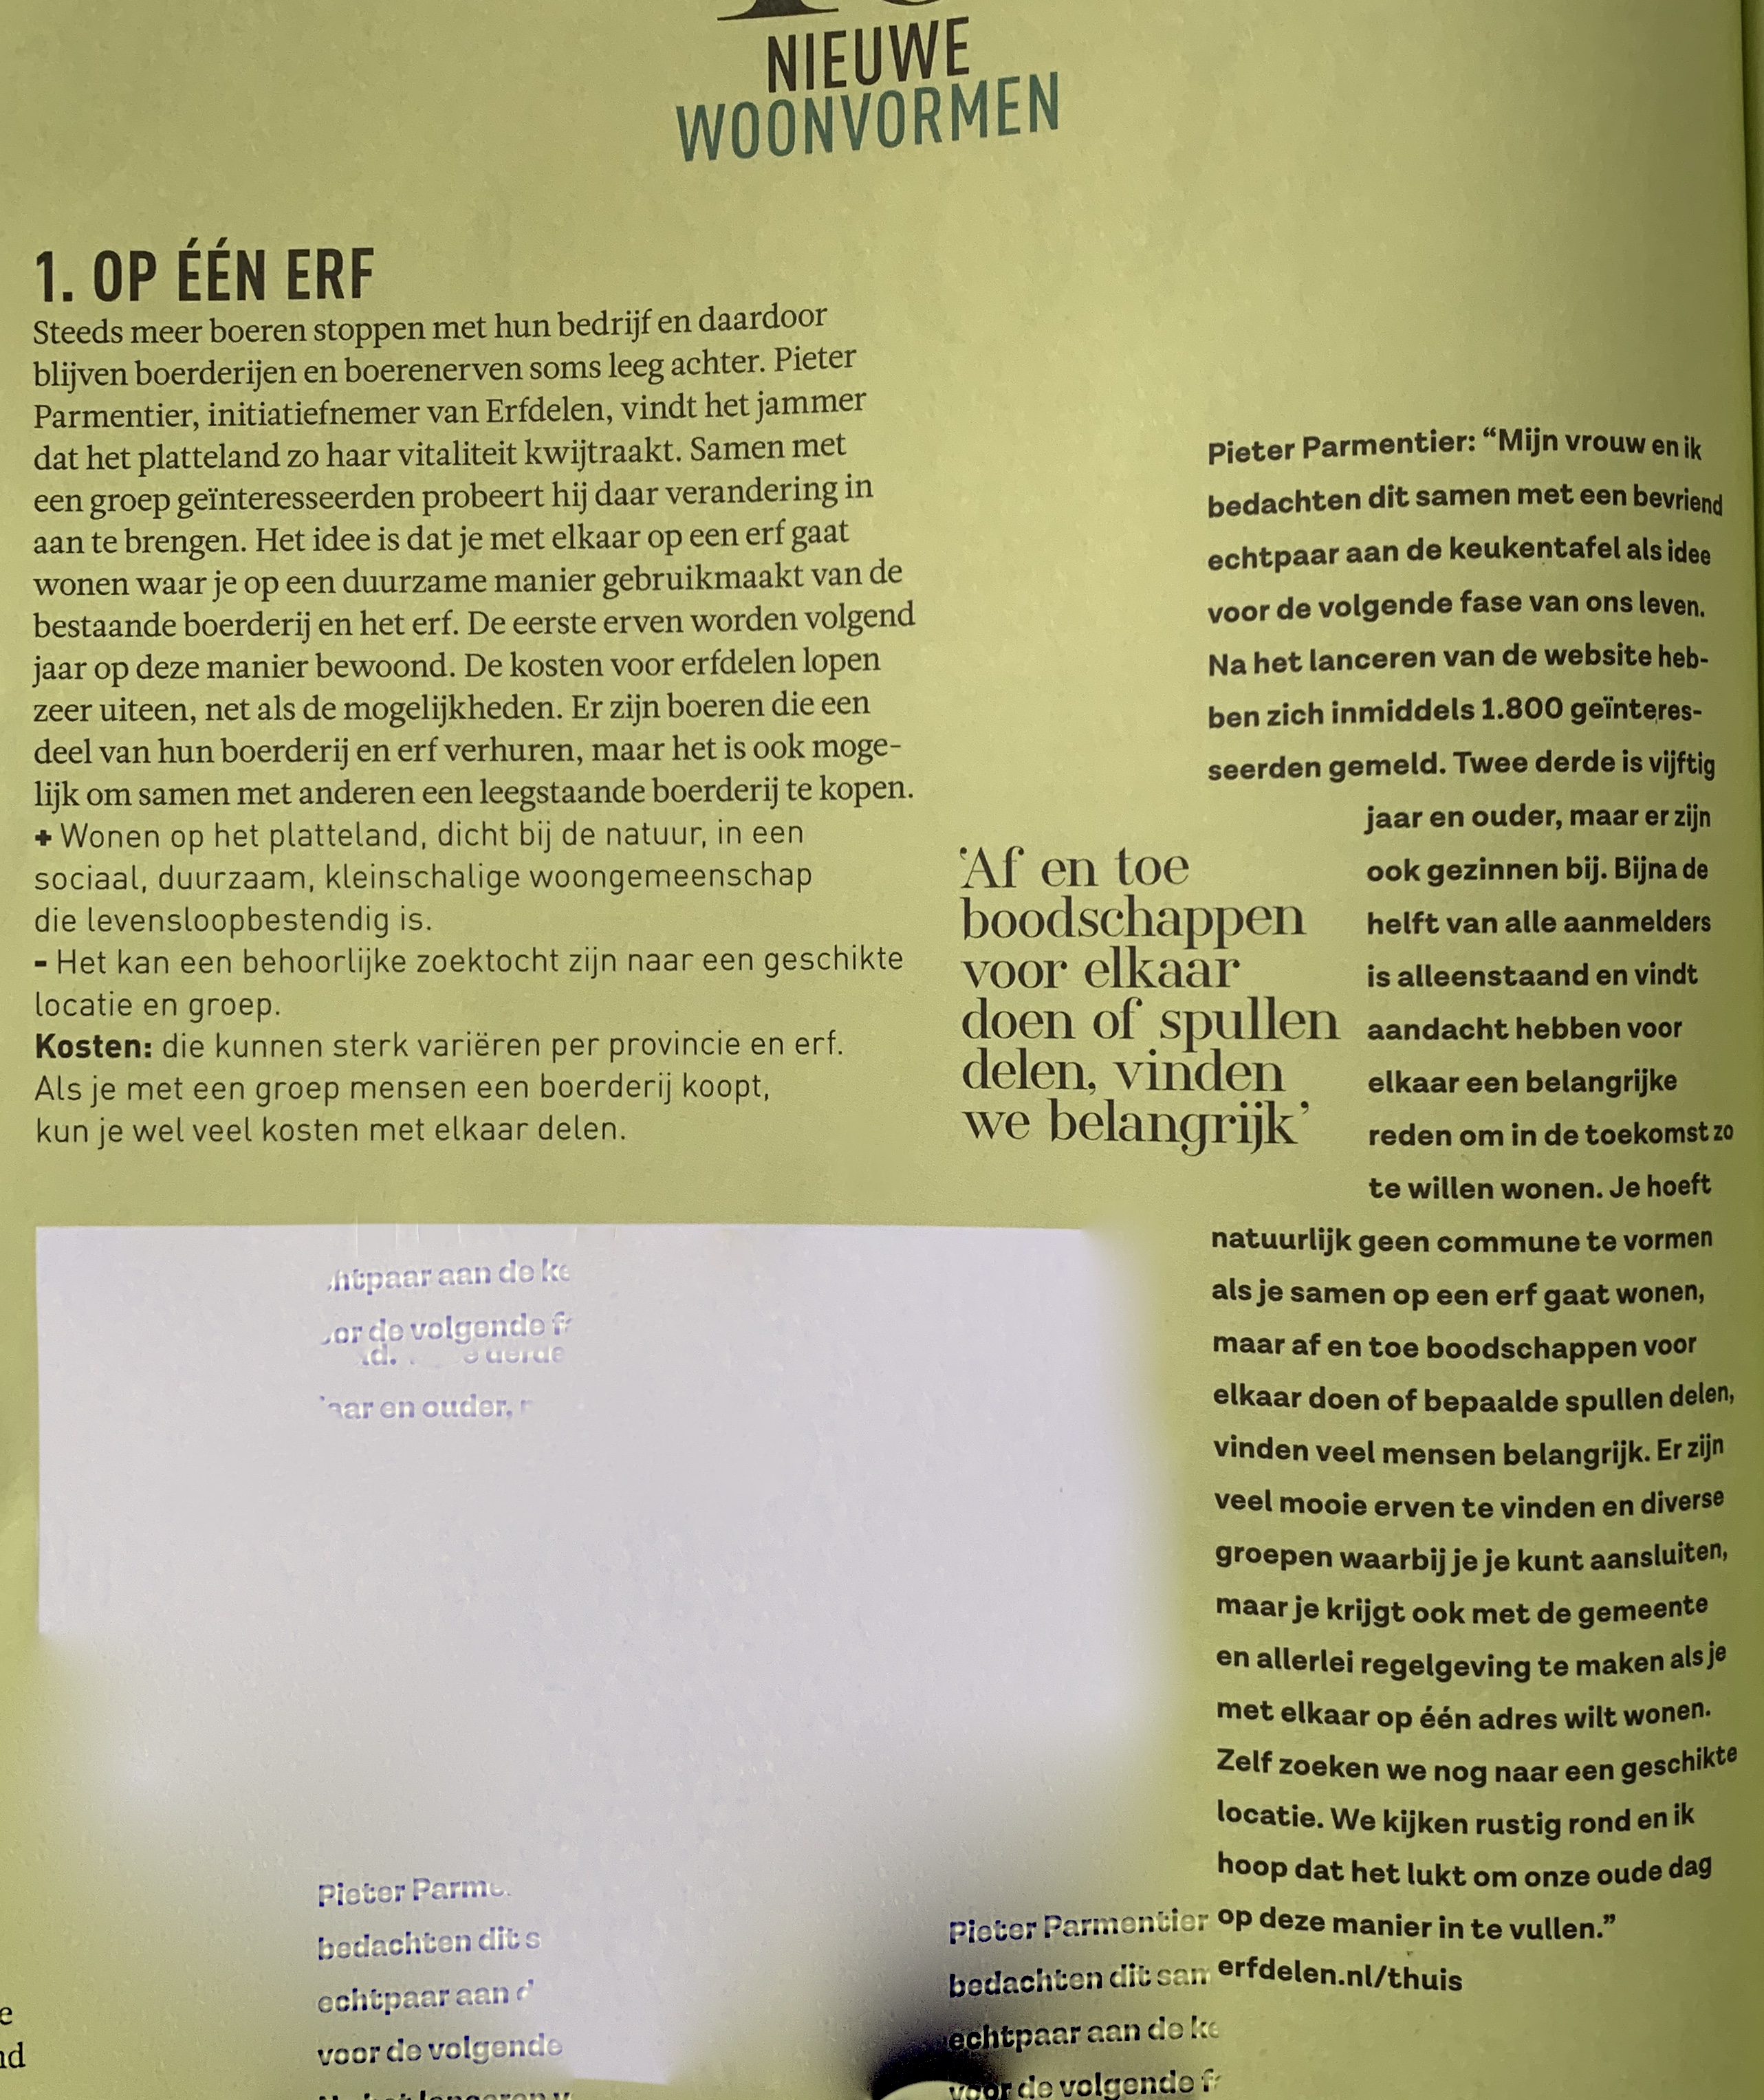 NIEUWE
WOONVORMEN
1. OP ÉÉN ERF
Steeds meer boeren stoppen met hun bedrijf en daardoor
blijven boerderijen en boerenerven soms leeg achter. Pieter
Parmentier, initiatiefnemer van Erfdelen, vindt het jammer
dat het platteland zo haar vitaliteit kwijtraakt. Samen met
een groep geïnteresseerden probeert hij daar verandering in
aan te brengen. Het idee is dat je met elkaar op een erf gaat
wonen waar je op een duurzame manier gebruikmaakt van de
bestaande boerderij en het erf. De eerste erven worden volgend
jaar op deze manier bewoond. De kosten voor erfdelen lopen
zeer uiteen, net als de mogelijkheden. Er zijn boeren die een
deel van hun boerderij en erf verhuren, maar het is ook moge-
lijk om samen met anderen een leegstaande boerderij te kopen.
+ Wonen op het platteland, dicht bij de natuur, in een
sociaal, duurzaam, kleinschalige woongemeenschap
die levensloopbestendig is.
- Het kan een behoorlijke zoektocht zijn naar een geschikte
locatie en groep.
Kosten: die kunnen sterk variëren per provincie en erf.
Als je met een groep mensen een boerderij koopt,
kun je wel veel kosten met elkaar delen.
‘Af en toe
boodschappen
voor elkaar
doen of spullen
delen, vinden
we belangrijk’
Pieter Parmentier: “Mijn vrouw en ik
bedachten dit samen met een bevriend
echtpaar aan de keukentafel als idee
voor de volgende fase van ons leven.
Na het lanceren van de website heb-
ben zich inmiddels 1.800 geïnteres-
seerden gemeld. Twee derde is vijftig
jaar en ouder, maar er zijn
ook gezinnen bij. Bijna de
helft van alle aanmelders
is alleenstaand en vindt
aandacht hebben voor
elkaar een belangrijke
reden om in de toekomst zo
te willen wonen. Je hoeft
natuurlijk geen commune te vormen
als je samen op een erf gaat wonen,
maar af en toe boodschappen voor
elkaar doen of bepaalde spullen delen,
vinden veel mensen belangrijk. Er zijn
veel mooie erven te vinden en diverse
groepen waarbij je je kunt aansluiten,
maar je krijgt ook met de gemeente
en allerlei regelgeving te maken als je
met elkaar op één adres wilt wonen.
Zelf zoeken we nog naar een geschikte
locatie. We kijken rustig rond en ik
hoop dat het lukt om onze oude dag
op deze manier in te vullen.”
erfdelen.nl/thuis
aan de
de volgende
en ouder,
Pieter
bedachten dit
echtpaar aan
voor de volgende
Pieter Parmentier
bedachten dit
echtpaar aan de
voor de volgende